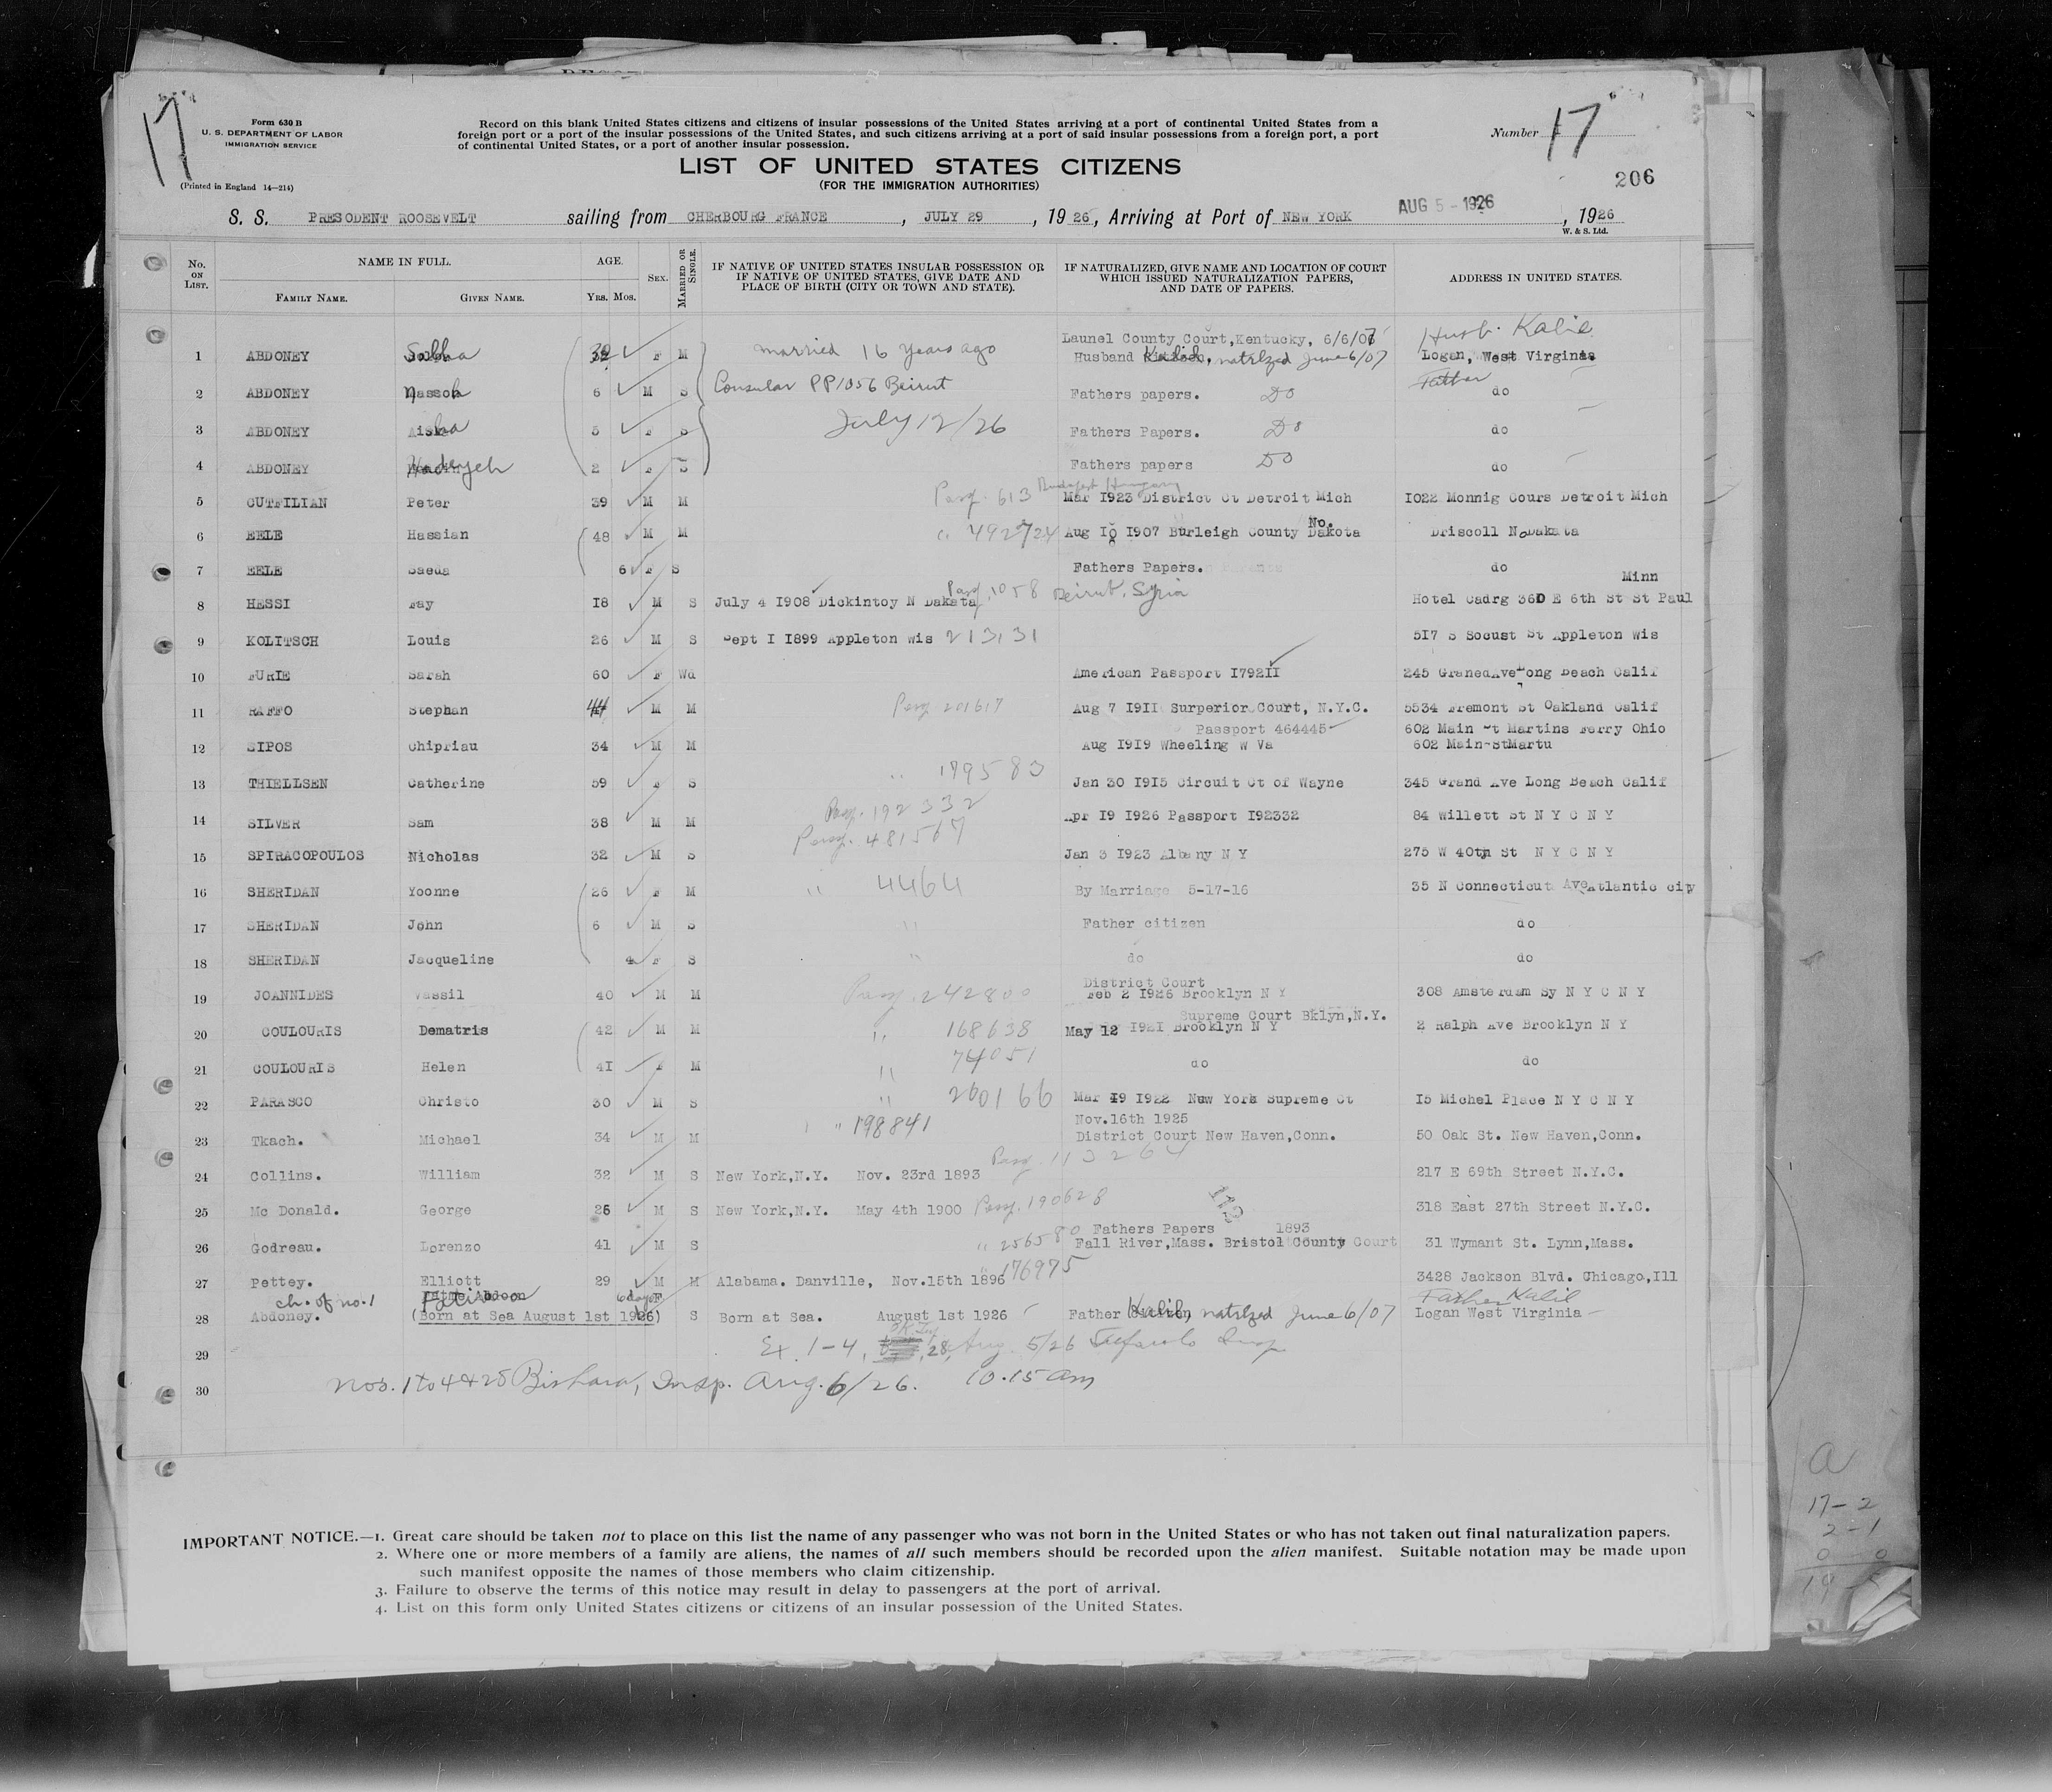 17
Form 630 B
U. S. DEPARTMENT OF LABOR
IMMIGRATION SERVICE
(Printed in England 14—214)
Record on this blank United States citizens and citizens of insular possessions of the United States arriving at a port of continental United States from a
foreign port or a port of the insular possessions of the United States, and such citizens arriving at a port of said insular possessions from a foreign port, a port
of continental United States, or a port of another insular possession.
Number 17
LIST OF UNITED STATES CITIZENS
(FOR THE IMMIGRATION AUTHORITIES)
206
S. S. PRESODENT ROOSEVELT sailing from CHERBOURG FRANCE, JULY 29, 1926, Arriving at Port of NEW YORK AUG 5 - 1926, 1926
W. & S. Ltd.
No. ON LIST. NAME IN FULL. FAMILY NAME. GIVEN NAME. AGE. Yrs. Mos. SEX. MARRIED OR SINGLE. IF NATIVE OF UNITED STATES INSULAR POSSESSION OR IF NATIVE OF UNITED STATES, GIVE DATE AND PLACE OF BIRTH (CITY OR TOWN AND STATE). IF NATURALIZED, GIVE NAME AND LOCATION OF COURT WHICH ISSUED NATURALIZATION PAPERS, AND DATE OF PAPERS. ADDRESS IN UNITED STATES.
Launel County Court, Kentucky, 6/6/07 Husb. Kalil
1 ABDONEY Sabha F M married 16 years ago Husband Kalil, natrlzed June 6/07 Logan, West Virginia
2 ABDONEY Nassoh 6 M S Consular PP1056 Beirut Fathers papers. Do Father do
3 ABDONEY Aisha 5 F S July 12/26 Fathers Papers. Do do
4 ABDONEY Hadeyeh 2 F S Fathers papers Do do
Pass. 613 Budapest Hungary
5 CUTFILIAN Peter 39 M M Mar 1923 District Ct Detroit Mich 1022 Monnig Cours Detroit Mich
6 EELE Hassian 48 M M Aug 10 1907 Burleigh County No. Dakota Driscoll No Dakata
7 EELE Saeda 6 F S Fathers Papers. do
Pass. 1058 Beirut, Syria Minn
8 HESSI Fay 18 M S July 4 1908 Dickintoy N Dakata Hotel Cadrg 360 E 6th St St Paul
9 KOLITSCH Louis 26 M S Sept I 1899 Appleton Wis 213131 517 S Socust St Appleton Wis
10 FURIE Sarah 60 F Wd American Passport I792II 245 GranedAve Long Beach Calif
11 RAFFO Stephan 44 M M Pass 201617 Aug 7 1911 Surperior Court, N.Y.C. 5534 Fremont St Oakland Calif
Passport 464445 602 Main St Martins Ferry Ohio
12 SIPOS Chipriau 34 M M Aug 1919 Wheeling W Va 602 Main-StMartu
13 THIELLSEN Catherine 59 F S " 179583 Jan 30 1915 Circuit Ct of Wayne 345 Grand Ave Long Beach Calif
14 SILVER Sam 38 M M Pass. 192332 Apr 19 1926 Passport 192332 84 Willett St N Y C N Y
15 SPIRACOPOULOS Nicholas 32 M S Pass. 481567 Jan 3 1923 Albany N Y 275 W 40th St N Y C N Y
16 SHERIDAN Yoonne 26 F M " 4464 By Marriage 5-17-16 35 N Connecticut Ave Atlantic city
17 SHERIDAN John 6 M S " Father citizen do
18 SHERIDAN Jacqueline 4 F S " do do
District Court
19 JOANNIDES Vassil 40 M M Pass. 242800 Feb 2 1926 Brooklyn N Y 308 Amsterdam Sy N Y C N Y
Supreme Court Bklyn, N.Y.
20 COULOURIS Dematris 42 M M " 168638 May 12 1921 Brooklyn N Y 2 Ralph Ave Brooklyn N Y
21 COULOURIS Helen 41 F M " 74051 do do
22 PARASCO Christo 30 M S " 200166 Mar 19 1922 New York Supreme Ct 15 Michel Place N Y C N Y
Nov.16th 1925
23 Tkach. Michael 34 M M " 198841 District Court New Haven,Conn. 50 Oak St. New Haven,Conn.
Pass. 113264
24 Collins. William 32 M S New York,N.Y. Nov. 23rd 1893 217 E 69th Street N.Y.C.
25 Mc Donald. George 26 M S New York,N.Y. May 4th 1900 Pass. 190628 318 East 27th Street N.Y.C.
113
Fathers Papers 1893
26 Godreau. Lorenzo 41 M S " 256580 Fall River,Mass. Bristol County Court 31 Wymant St. Lynn,Mass.
27 Pettey. Elliott 29 M M Alabama. Danville, Nov.15th 1896 " 176975 3428 Jackson Blvd. Chicago,Ill
ch. of no.1 Fatima 6 days F Father Kalil
28 Abdoney. (Born at Sea August 1st 1926) S Born at Sea. August 1st 1926 Father Kalil, natrlzed June 6/07 Logan West Virginia
29 Ex. 1-4, 28, Aug. 5/26 Insp.
30 Nos. 1 to 4 & 28 Bishara, Insp. Aug. 6/26. 10.15 am
IMPORTANT NOTICE.—1. Great care should be taken not to place on this list the name of any passenger who was not born in the United States or who has not taken out final naturalization papers.
2. Where one or more members of a family are aliens, the names of all such members should be recorded upon the alien manifest. Suitable notation may be made upon
such manifest opposite the names of those members who claim citizenship.
3. Failure to observe the terms of this notice may result in delay to passengers at the port of arrival.
4. List on this form only United States citizens or citizens of an insular possession of the United States.
a
17-2
2-1
0 0